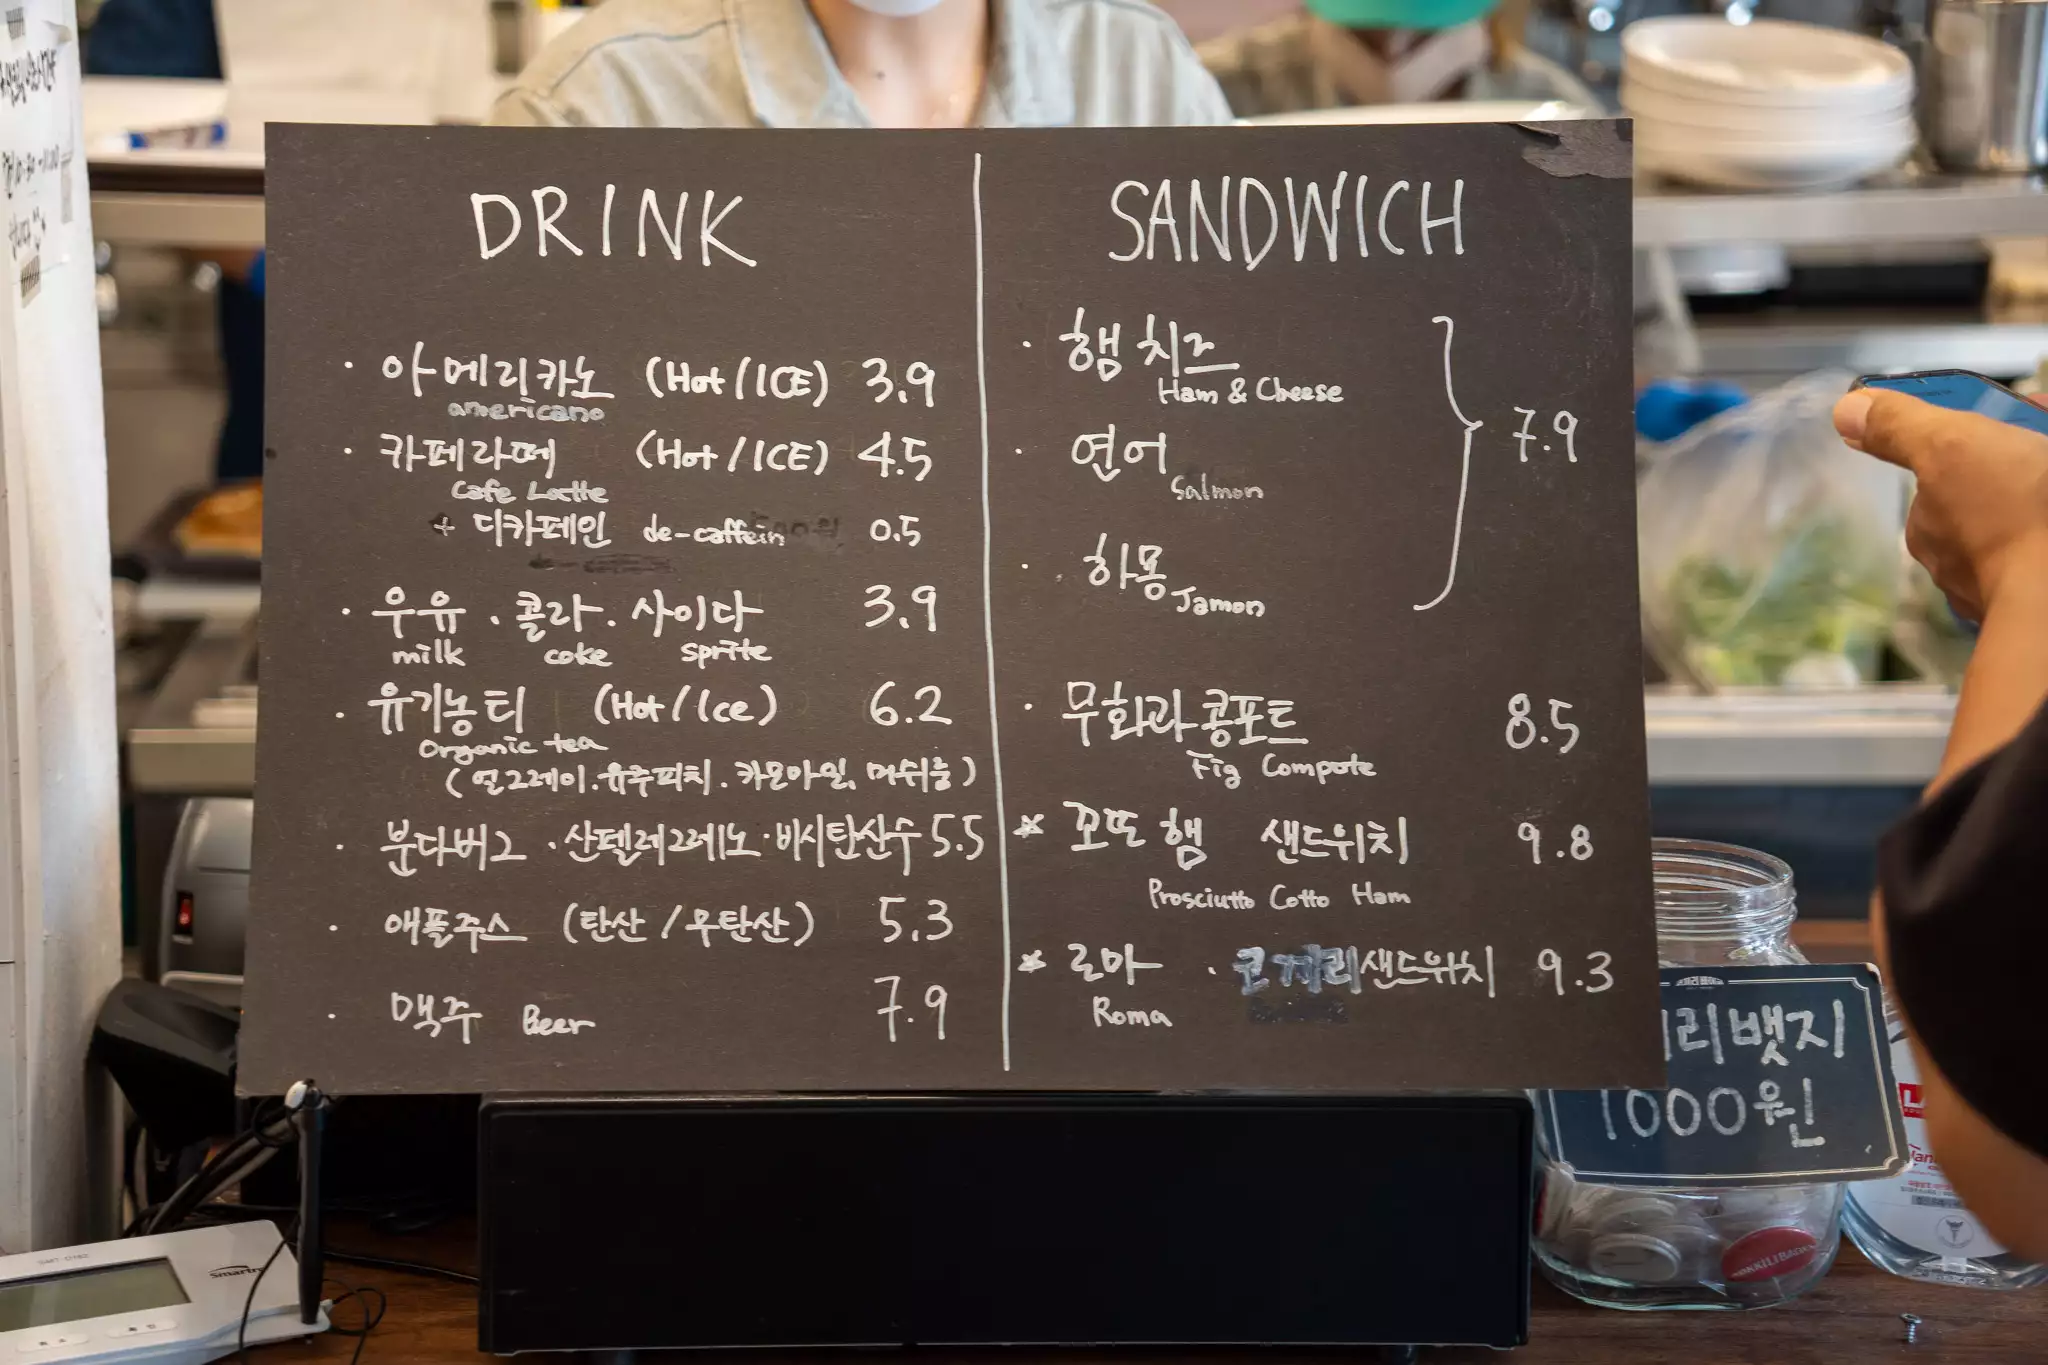 DRINK
· 아메리카노 (Hot/ICE) 3.9
americano
· 카페라떼 (Hot/ICE) 4.5
Cafe Latte
+ 디카페인 de-caffein 0.5
· 우유 · 콜라 · 사이다 3.9
milk coke sprite
· 유기농티 (Hot/Ice) 6.2
organic tea
(얼그레이.유주피치.카모마일.머쉬룸)
· 분다버그 · 산펠레그레노 · 비시탄산수 5.5
· 애플주스 (탄산/무탄산) 5.3
· 맥주 Beer 7.9
SANDWICH
· 햄치즈
Ham & Cheese
· 연어 7.9
Salmon
· 하몽
Jamon
· 무화과콩포트 8.5
Fig Compote
* 꼬또햄 샌드위치 9.8
Prosciutto Cotto Ham
* 로마 · 코끼리샌드위치 9.3
Roma
리뱃지
1000원
Smartro